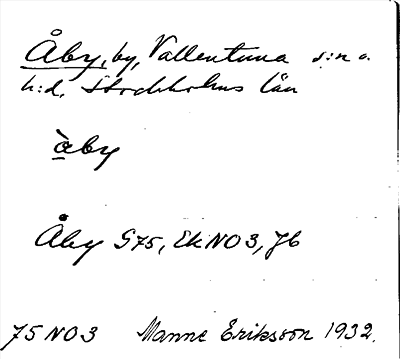 Åby, by, Vallentuna s:n o.
h:d, Stockholms län
àby
Åby G75, EkNO3, Jb
75 NO3 Manne Eriksson 1932.